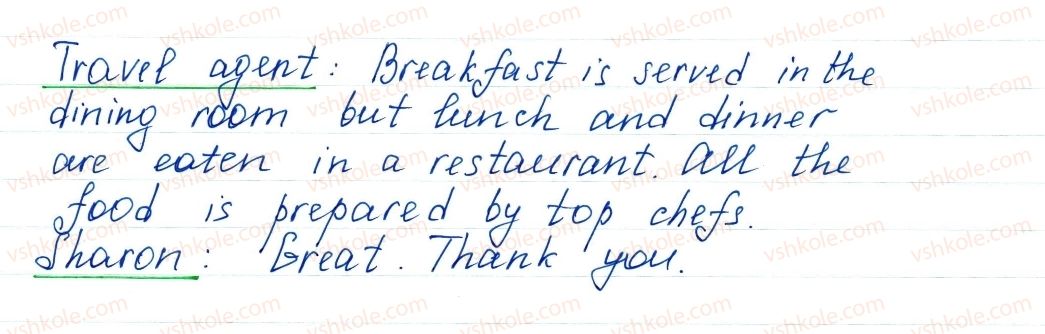 Travel agent: Breakfast is served in the
dining room but lunch and dinner
are eaten in a restaurant. All the
food is prepared by top chefs.
Sharon: Great. Thank you.